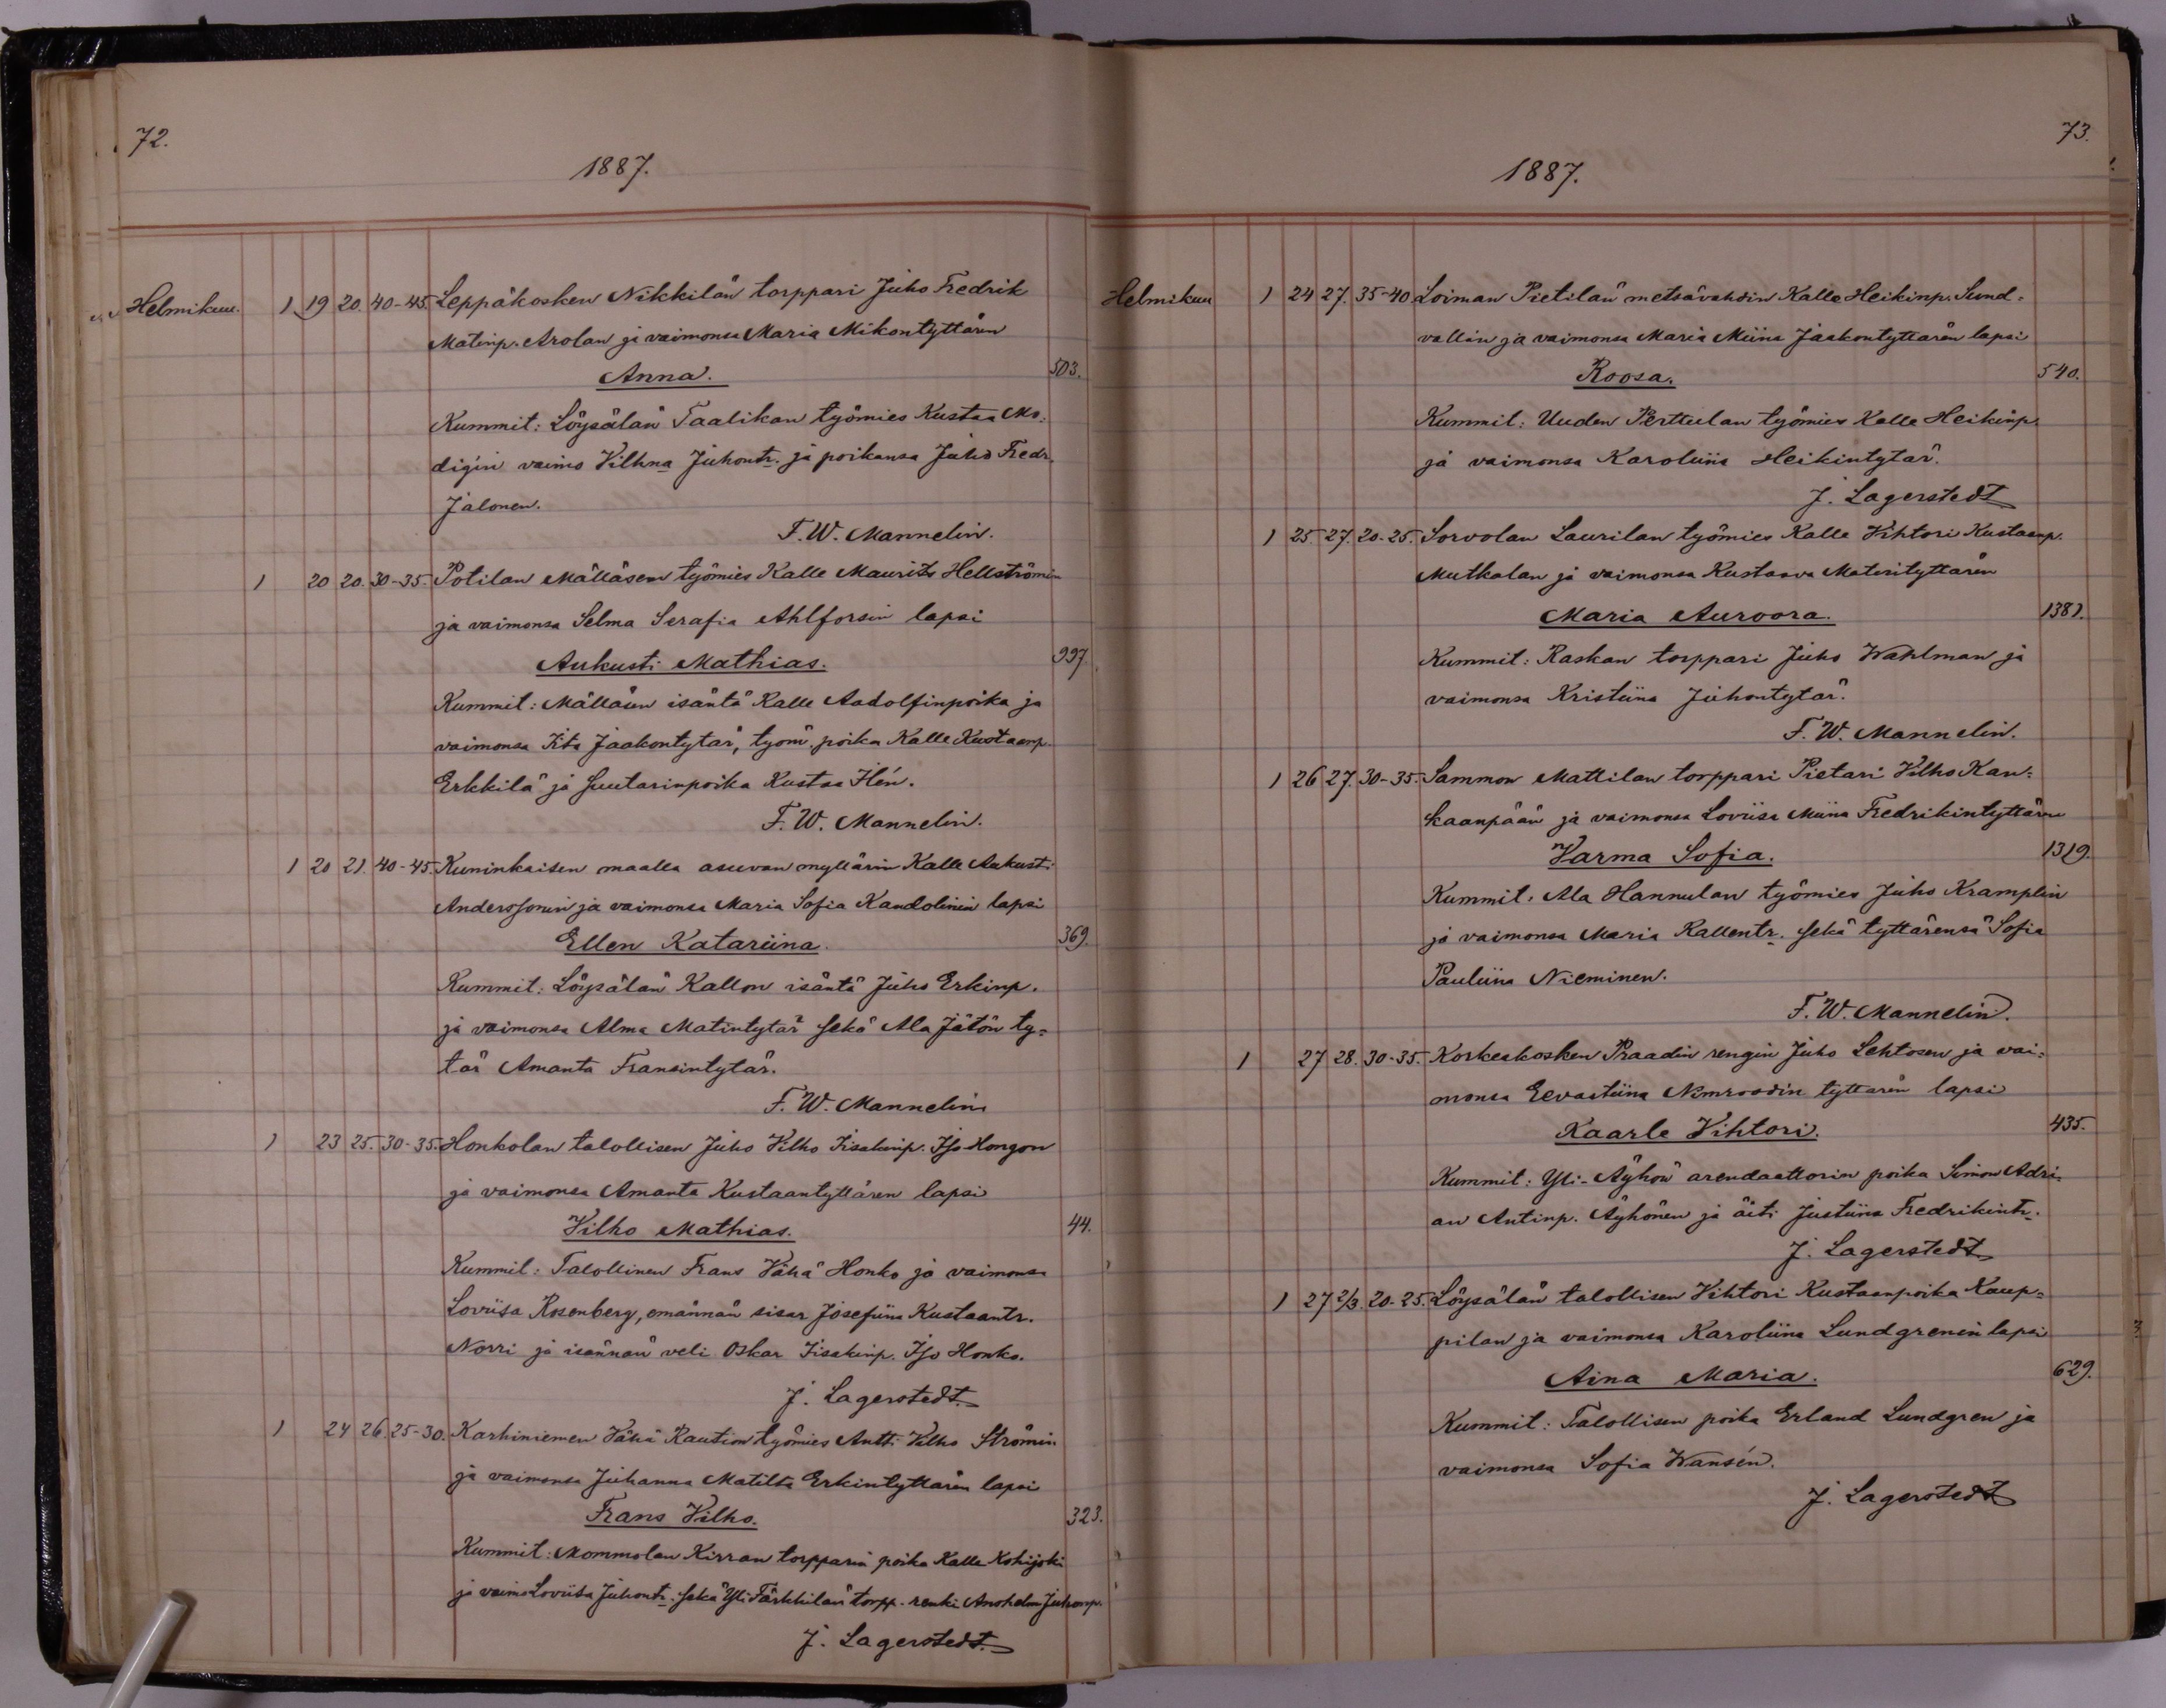 72.
1887.
Helmikuu. 1 19 20. 40-45. Leppäkosken Nikkilän torppari Juho Fredrik
Matinp. Arolan ja vaimonsa Maria Mikontyttären
Anna. 503.
Kummit: Löysälän Taalikan työmies Kustaa Mo-
digin vaimo Vilhna Juhontr. ja poikansa Juho Fredr.
Jalonen.
F. W. Mannelin.
1 20 20. 30-35. Potilan Mälläsen työmies Kalle Maurits Hellströmin
ja vaimonsa Selma Serafia Ahlforsin lapsi
Aukusti Mathias. 997.
Kummit: Mälläsen isäntä Kalle Aadolfinpoika ja
vaimonsa Iita Jaakontytär, työm. poika Kalle Kustaanp.
Erkkilä ja suutarinpoika Kustaa Hén.
F. W. Mannelin.
1 20 21. 40-45. Kuninkaisen maalla asuvan myllärin Kalle Aukusti
Anderssonin ja vaimonsa Maria Sofia Kandolinin lapsi
Ellen Katariina. 369.
Kummit: Löysälän Kallon isäntä Juho Erkinp.
ja vaimonsa Alma Matintytär sekä Ala Jätön ty-
tär Amanta Fransintytär.
F. W. Mannelin
1 23 25. 30-35. Honkolan talollisen Juho Vilho Iisakinp. Iso Hongon
ja vaimonsa Amanta Kustaantyttären lapsi
Vilho Mathias. 44.
Kummit: Talollinen Frans Vähä Honko ja vaimonsa
Loviisa Rosenberg, emännän sisar Josefiina Kustaantr.
Norri ja isännän veli Oskar Iisakinp. Iso Honko.
J. Lagerstedt.
1 24 26. 25-30. Karhiniemen Vähä Raution työmies Antti Vilho Strömin
ja vaimonsa Juhanna Matilta Erkintyttären lapsi
Frans Vilho. 323.
Kummit: Mommolan Kirran torpparin poika Kalle Kohijoki
ja vaimo Loviisa Juhontr. sekä Yli Tärkkilän torp. renki Juhonp.
J. Lagerstedt.
73.
1887.
Helmikuu 1 24 27. 35-40 Loiman Pietilän metsävahdin Kalle Heikinp. Sund-
vallin ja vaimonsa Maria Miina Jaakontyttären lapsi
Roosa. 540.
Kummit: Uuden Perttulan työmies Kalle Heikinp.
ja vaimonsa Karoliina Heikintytär.
J. Lagerstedt
1 25. 27. 20-25. Sorvolan Laurilan työmies Kalle Vihtori Kustaanp.
Mutkalan ja vaimonsa Kustaava Matintyttären
Maria Auroora. 1381.
Kummit: Raskan torppari Juho Wahlman ja
vaimonsa Kristiina Juhontytär.
F. W. Mannelin.
1 26 27. 30-35. Sammon Mattilan torppari Pietari Vilho Kan-
kaanpään ja vaimonsa Loviisa Miina Fredrikintyttären
Varma Sofia. 1319.
Kummit. Ala Hannulan työmies Juho Kramplin
ja vaimonsa Maria Kallentr. sekä tyttärensä Sofia
Pauliina Nieminen.
F. W. Mannelin.
1 27 28. 30-35. Korkeakosken Praadin rengin Juho Lehtosen ja vai-
monsa Eevastiina Nimroodin tyttären lapsi
Kaarle Vihtori. 435.
Kummit: Yli-Äyhön arendaattorin poika Simon Adri-
an Antinp. Äyhönen ja äiti Justiina Fredrikintr.
J. Lagerstedt
1 27 2/3. 20-25. Löysälän talollisen Vihtori Kustaanpoika Kaup-
pilan ja vaimonsa Karoliina Lundgrenin lapsi
Aina Maria. 629.
Kummit: Talollisen poika Erland Lundgren ja
vaimonsa Sofia Wansén.
J. Lagerstedt